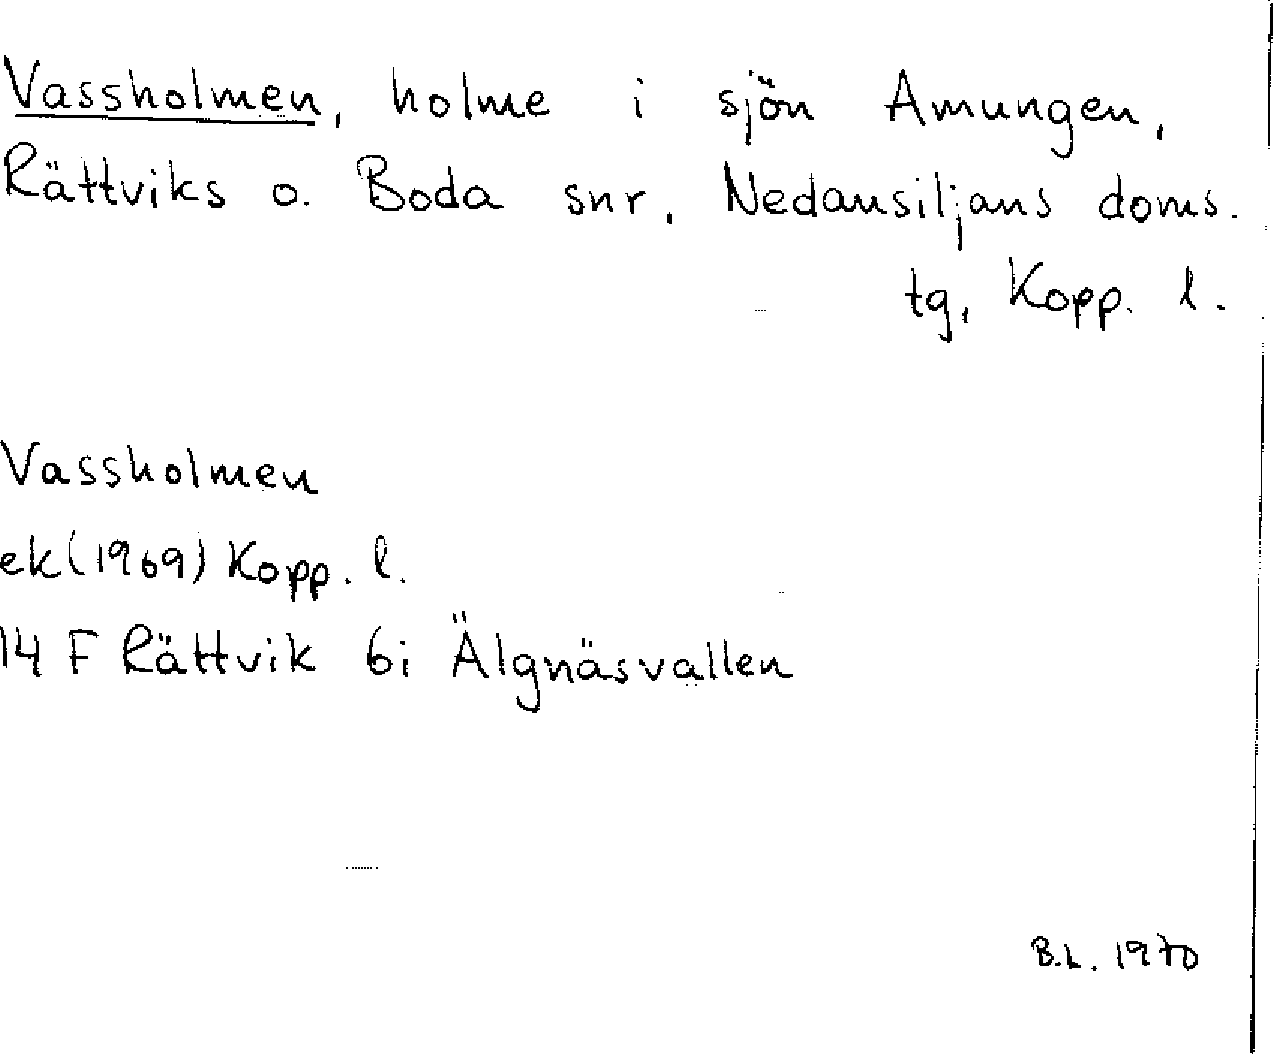 Vassholmen, holme i sjön Amungen,
Rättviks o. Boda snr, Nedansiljans doms.
tg, Kopp. l.
Vassholmen
ek (1969) Kopp. l.
14 F Rättvik 6i Älgnäsvallen
B.L. 1970